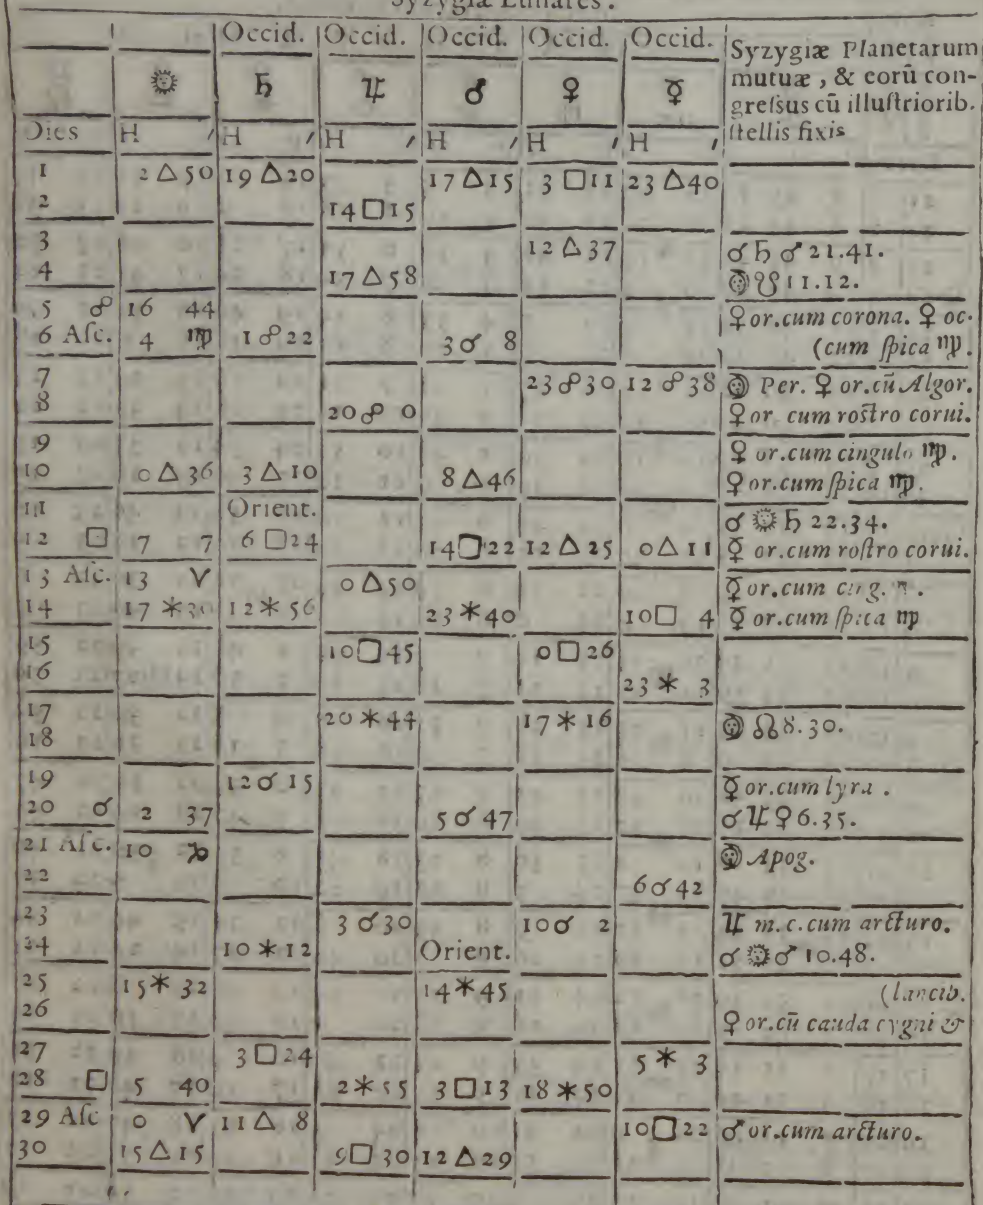 Syzygiæ Lunares.
Occid. Occid. Occid. Occid. Occid. Syzygiæ Planetarum
mutuæ, & eorū con-
☼ ♄ ♃ ♂ ♀ ☿ greſsus cū illuſtriorib.
Dies H ′ H ′ H ′ H ′ H ′ H ′ ſtellis fixis
1 2 △ 50 19 △ 20 17 △ 15 3 □ 11 23 △ 40
2 14 □ 15
3 12 △ 37 ☌ ♄ ♂ 21.41.
4 17 △ 58 ☽ ☋ 11.12.
5 ☍ 16 44 ♀ or.cum corona. ♀ oc.
6 Aſc. 4 ♍ 1 ☍ 22 3 ☌ 8 (cum ſpica ♍.
7 23 ☍ 30 12 ☍ 38 ☽ Per. ♀ or.cū Algor.
8 20 ☍ 0 ♀ or. cum roſtro corui.
9 ♀ or.cum cingulo ♍.
10 0 △ 36 3 △ 10 8 △ 46 ♀ or.cum ſpica ♍.
11 Orient. ☌ ☼ ♄ 22.34.
12 □ 7 7 6 □ 24 14 □ 22 12 △ 25 0 △ 11 ☿ or.cum roſtro corui.
13 Aſc. 13 ♈ 0 △ 50 ☿ or.cum cing.
14 17 ⚹ 30 12 ⚹ 56 23 ⚹ 40 10 □ 4 ☿ or.cum ſpica ♍
15 10 □ 45 0 □ 26
16 23 ⚹ 3
17 20 ⚹ 44 17 ⚹ 16 ☽ ☊ 8.30.
18
19 12 ☌ 15 ☿ or.cum lyra.
20 ☌ 2 37 5 ☌ 47 ☌ ♃ ♀ 6.35.
21 Aſc. 10 ♑ ☽ Apog.
22 6 ☌ 42
23 3 ☌ 30 10 ☌ 2 ♃ m.c.cum arcturo.
24 10 ⚹ 12 Orient. ☌ ☼ ♂ 10.48.
25 15 ⚹ 32 14 ⚹ 45 (lancib.
26 ♀ or.cū cauda cygni &
27 3 □ 24 5 ⚹ 3
28 □ 5 40 2 ⚹ 55 3 □ 13 18 ⚹ 50
29 Aſc 0 ♈ 11 △ 8 10 □ 22 ♂ or.cum arcturo.
30 15 △ 15 9 □ 30 12 △ 29